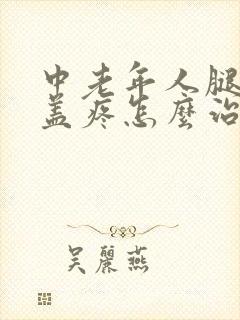 中老年人腿膝
盖疼怎麼治
吴麗燕